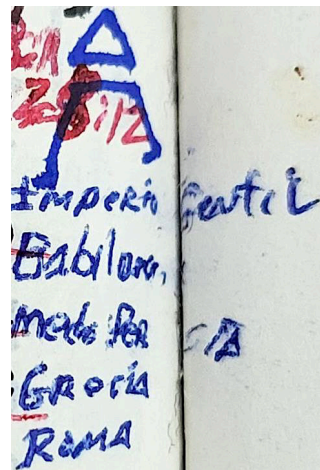 Imperio Gentil
Babilonia,
Medo Persia
Grecia
Roma